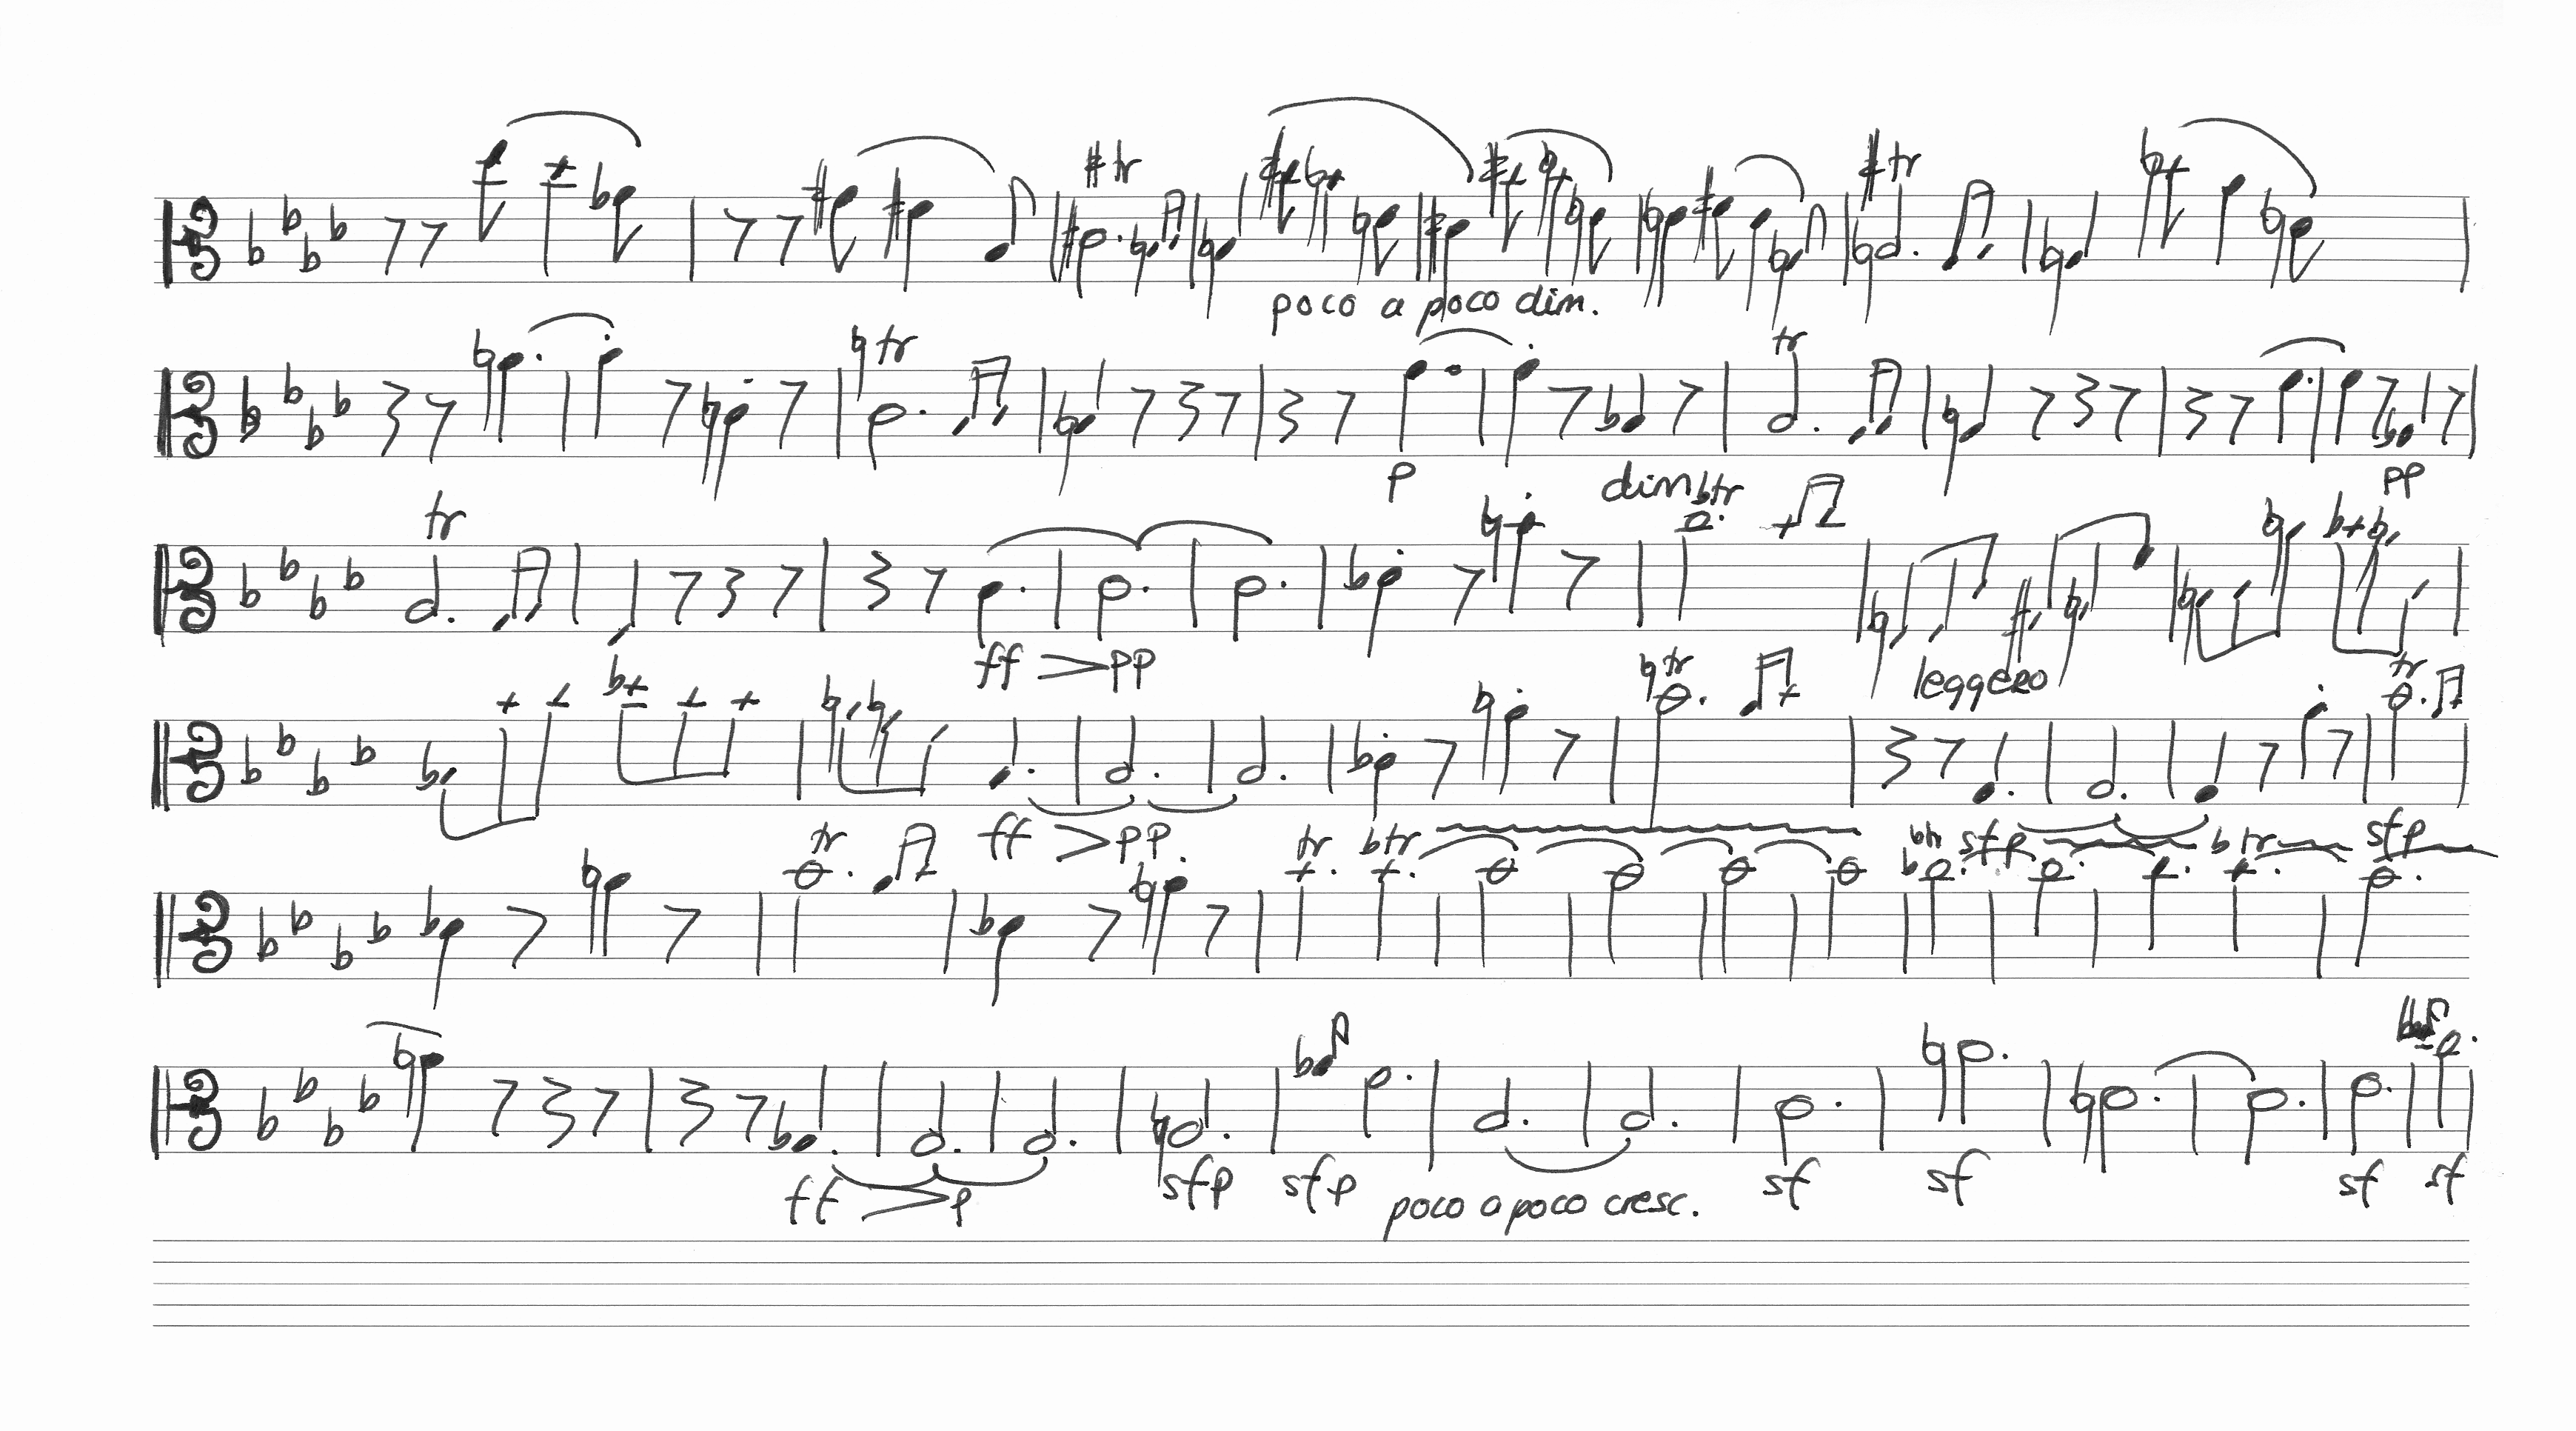 tr tr
poco a poco dim.
tr tr
p dim pp
tr tr
ff pp leggero
tr tr
ff pp. sfp sfp
tr tr tr tr tr
ff p sfp sfp poco a poco cresc. sf sf sf sf